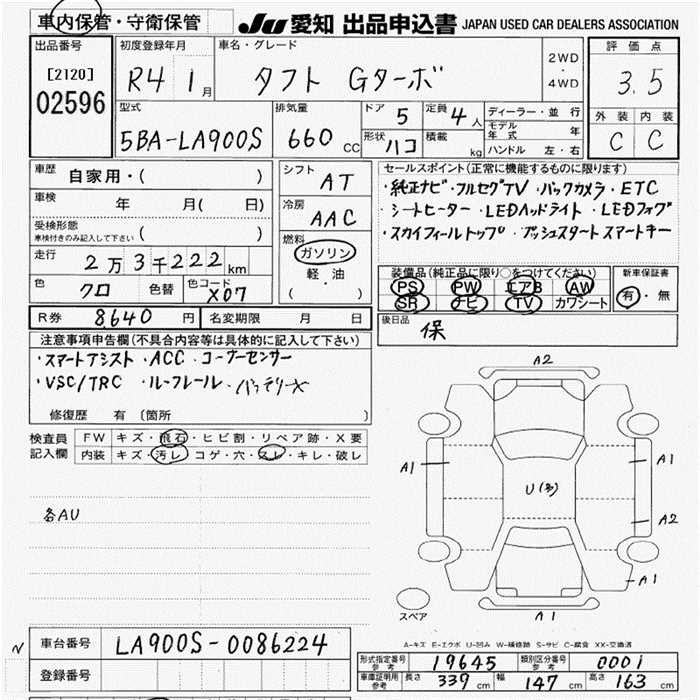 車内保管・守衛保管
JU 愛知 出品申込書 JAPAN USED CAR DEALERS ASSOCIATION
出品番号
[2120]
02596
初度登録年月
R4 1月
車名・グレード
タフト Gターボ
2WD・4WD
評価点
3.5
外装 内装
C C
型式
5BA-LA900S
排気量
660 CC
ドア 5
定員 4人
形状 ハコ
積載 kg
ディーラー・並行
モデル年式 年
ハンドル 左・右
車歴 自家用・( )
車検 年 月( 日)
受検形態
車検付きのみ記入して下さい ( )
走行 2万3千222km
色 クロ 色替 色コード X07
シフト AT
冷房 AAC
燃料
ガソリン
軽・油
( )
セールスポイント(正常に機能するものに限ります)
・純正ナビ・フルセグTV・バックカメラ・ETC
・シートヒーター・LEDヘッドライト・LEDフォグ
・スカイフィールトップ・プッシュスタートスマートキー
装備品(純正品に限り○をつけてください)
PS PW エアB AW
SR ナビ TV カワシート
新車保証書
有・無
R券 8640円 名変期限 月 日
後日品 保
注意事項申告欄(不具合内容等は具体的に記入して下さい)
・スマートアシスト・ACC・コーナーセンサー
・VSC/TRC・ルーフレール・バッテリーX
修復歴 有 〔箇所 〕
検査員記入欄
FW キズ・飛石・ヒビ割・リペア跡・X要
内装 キズ・汚レ・コゲ・穴・スレ・キレ・破レ
各AU
A2
A1
A1
U(多)
A2
A1
A1
スペア
A-キズ E-エクボ U-凹み W-補修跡 S-サビ C-腐食 XX-交換済
N
車台番号 LA900S-0086224
登録番号
型式指定番号 参考 19645 類別区分番号 参考 0001
車庫証明用 参考 長さ 339cm 幅 147cm 高さ 163cm